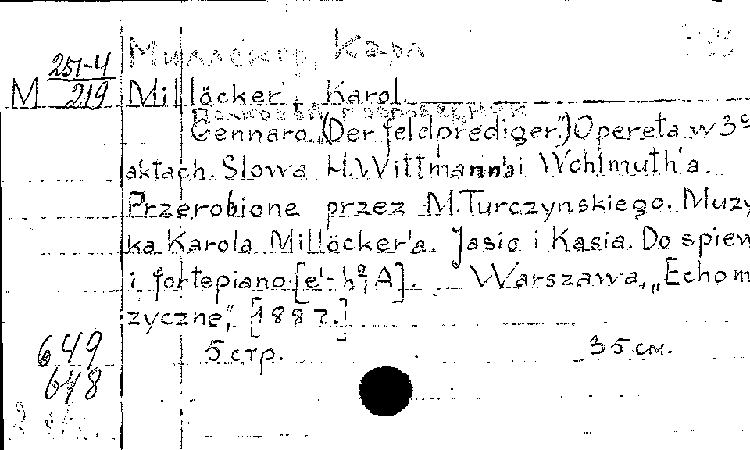 Миллёкер, Карл
М 251-4
219
Millöcker, Karol
Gennaro. (Der Feldprediger.) Opereta w 3ch
aktach. Słowa H. Wittmann'a i Wohlmuth'a.
Przerobione przez M. Turczynskiego. Muzy
ka Karola Millöcker'a. Jasio i Kasia. Do spiew
i fortepiano. [e¹-h²; A]. Warszawa, "Echo m
zyczne", [1887.]
649 5 стр. 35 см.
648
2 экз.